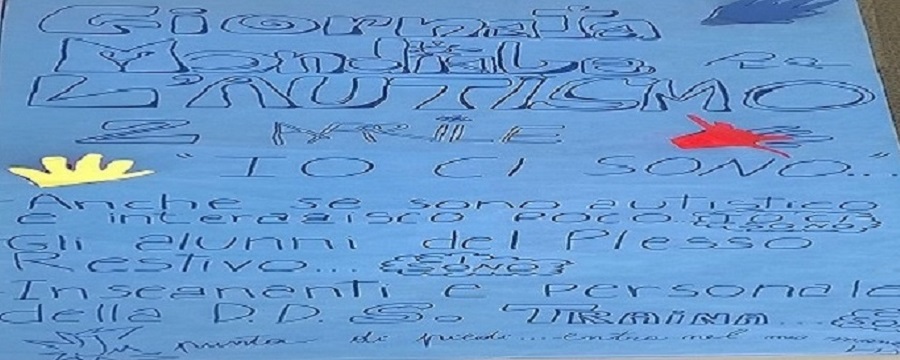 Giornata
Mondiale Per
L'AUTISMO
2 APRILE
"IO CI SONO..."
Anche se sono autistico
e interagisco poco... io ci sono
Gli alunni del Plesso
Restivo.... CI SONO
Insegnanti e personale
della D.D. S. TRAINA...
In punta di piedi... entra nel mio